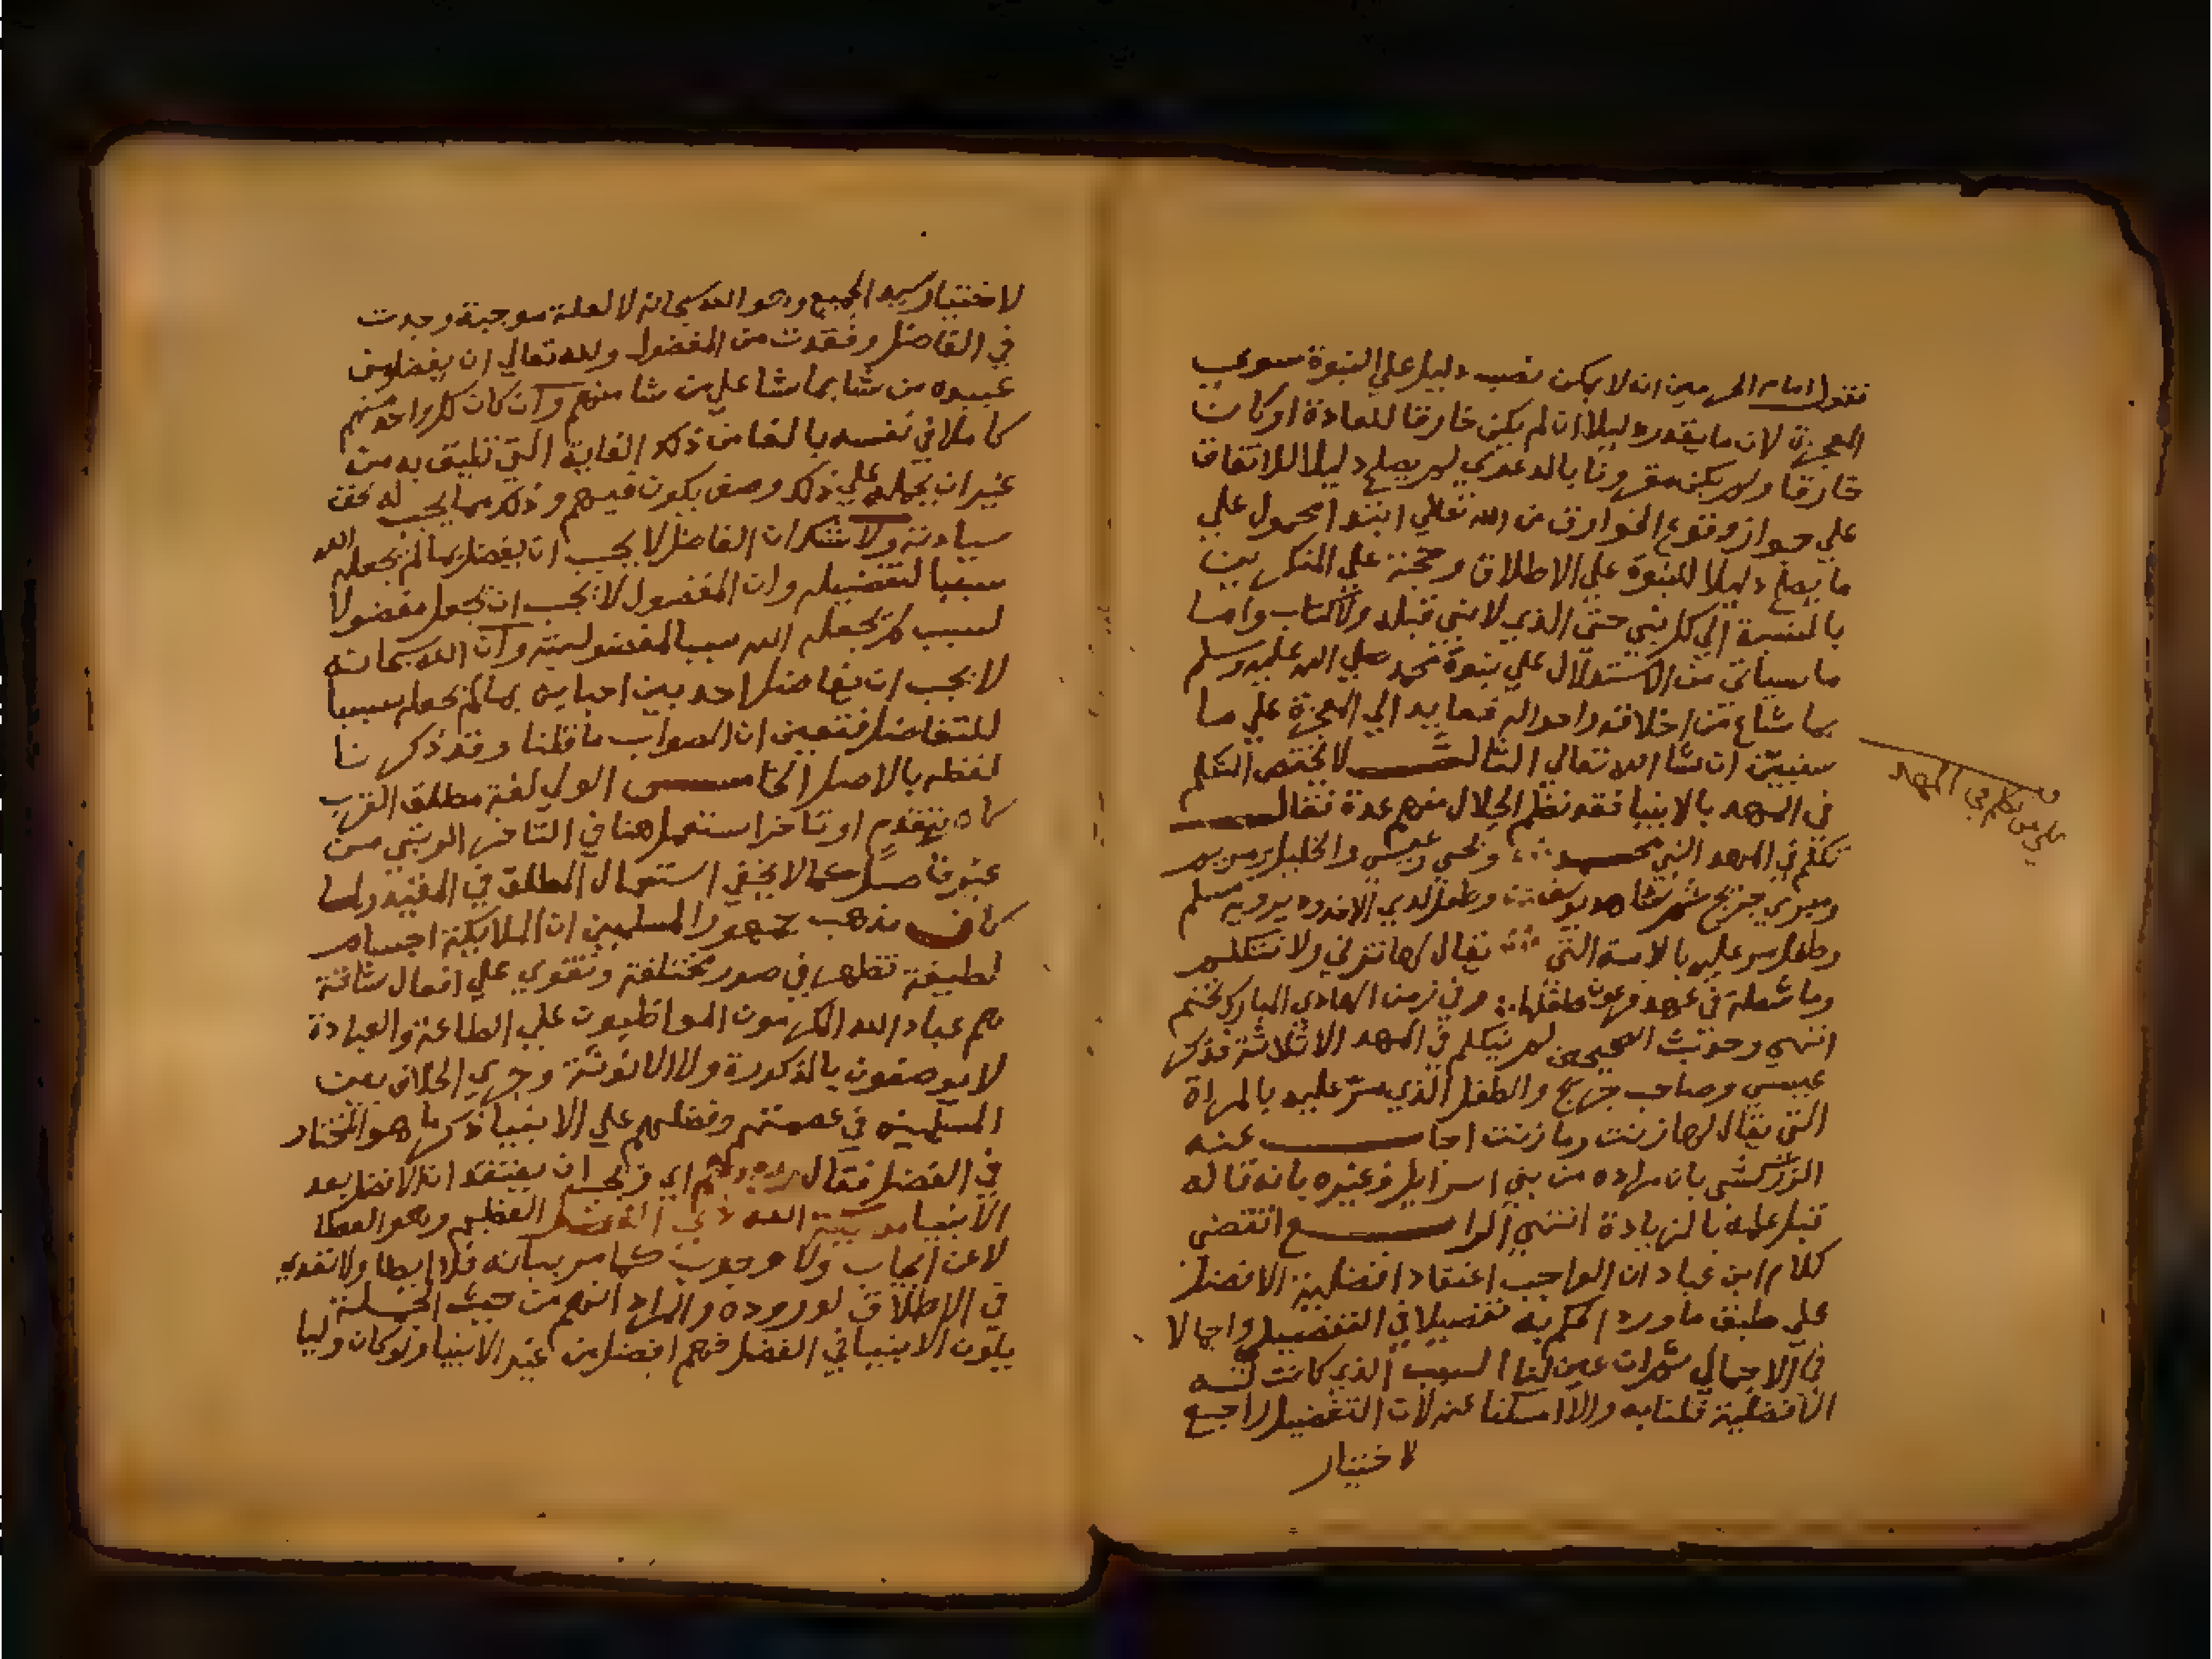 فقول امام الحرمين انه لا يمكن نصب دليل علي النبوة سوي
المعجزة لان ما يقدر دليلا ان لم يكن خارقا للعادة او كان
خارقا ولم يكن مقرونا بالدعوي لم يصلح دليلا للاتفاق
علي جواز وقوع الخوارق من الله تعالي ابتدا محمول علي
ما يصلح دليلا للنبوة علي الاطلاق وحجة علي المنكرين
بالنسبة الي كل نبي حتي الذي لا نبي قبله ولا كتاب واما
ما سياتي من الاستدلال علي نبوة محمد صلي الله عليه وسلم
بما شاع من اخلاقه واحواله فعايد الي المعجزة علي ما
سنبين ان شا الله تعالي الثالث لا يختص التكلم
في المهد بالانبيا فقد نظم الجلال منهم عدة فقال
تكلم في المهد النبي محمد ويحيي وعيسي والخليل ومريم
ومبري جريج ثم شاهد يوسف وطفل لدي الاخدود يرويه مسلم
وطفل مر عليه بالامة التي يقال لها تزني ولا تتكلم
وماشطة في عهد فرعون طفلها وفي زمن الهادي المبارك يختم
انتهي وحديث الصحيحين لم يتكلم في المهد الا ثلاثة فذكر
عيسي وصاحب جريج والطفل الذي مر عليه بالمراة
التي يقال لها زنت وما زنت اجاب عنه
الزركشي بان مراده من بني اسرايل وغيره بانه قاله
قبل علمه بالزيادة انتهي الرابع اقتضي
كلام ابن عباد ان الواجب اعتقاد افضلية الافضل
علي طبق ما ورد الحكم به تفصيلا في التفصيلي واجمالا
في الاجمالي ثم ان عين لنا السبب الذي كانت له
الافضلية قلنا به والا امسكنا عنه لان التفضيل راجع
لاختيار
من تكلم في المهد
لاختيار سيد الجميع وهو الله سبحانه لا لعلة موجبة وجدت
في الفاضل وفقدت من المفضول ولله تعالي ان يفضل من
عبيده من شا بما شا علي من شا منهم وان كان كل واحد منهم
كاملا في نفسه بالغا من ذلك الغاية التي تليق به من
غير ان يحمله علي ذلك وصف يكون فيهم وذلك مما يجب له بحق
سيادته ولا شك ان الفاضل لا يجب ان يفضل بما لم يجعله الله
سببا لتفضيله وان المفضول لا يجب ان يجعل مفضولا
لسبب لم يجعله الله سببا لمفضوليته وان الله سبحانه
لا يجب ان يفاضل احد بين احبايه بما لم يجعله سببا
للتفاضل فتعين ان الصواب ما قلنا وقد ذكرنا
لفظه بالاصل الخامس الولي لغة مطلق القرب
تقدم او تاخر استعمل هنا في التاخر الرتبي من
غير فاصل كما لا يخفي استعمال المطلق في المقيد ولما
كان مذهب جمهور المسلمين ان الملايكة اجسام
لطيفة تظهر في صور مختلفة وتقوي علي افعال شاقة
هم عباد الله المكرمون المواظبون علي الطاعة والعبادة
لا يوصفون بالذكورة ولا الانوثة وجري الخلاف بين
المسلمين في عصمتهم وفضلهم علي الانبيا ذكر ما هو المختار
في الفضل فقال اي ويجب ان يعتقد ان الافضل بعد
الانبيا ملايكة الله ذي الفضل العظيم وهو العطا
لا عن ايجاب ولا وجوب كما مر بيانه فلا ايطا ولا تعدي
في الاطلاق لوروده والمراد انهم من حيث الجملة
يلون الانبيا في الفضل فهم افضل من غير الانبيا ولو كان وليا